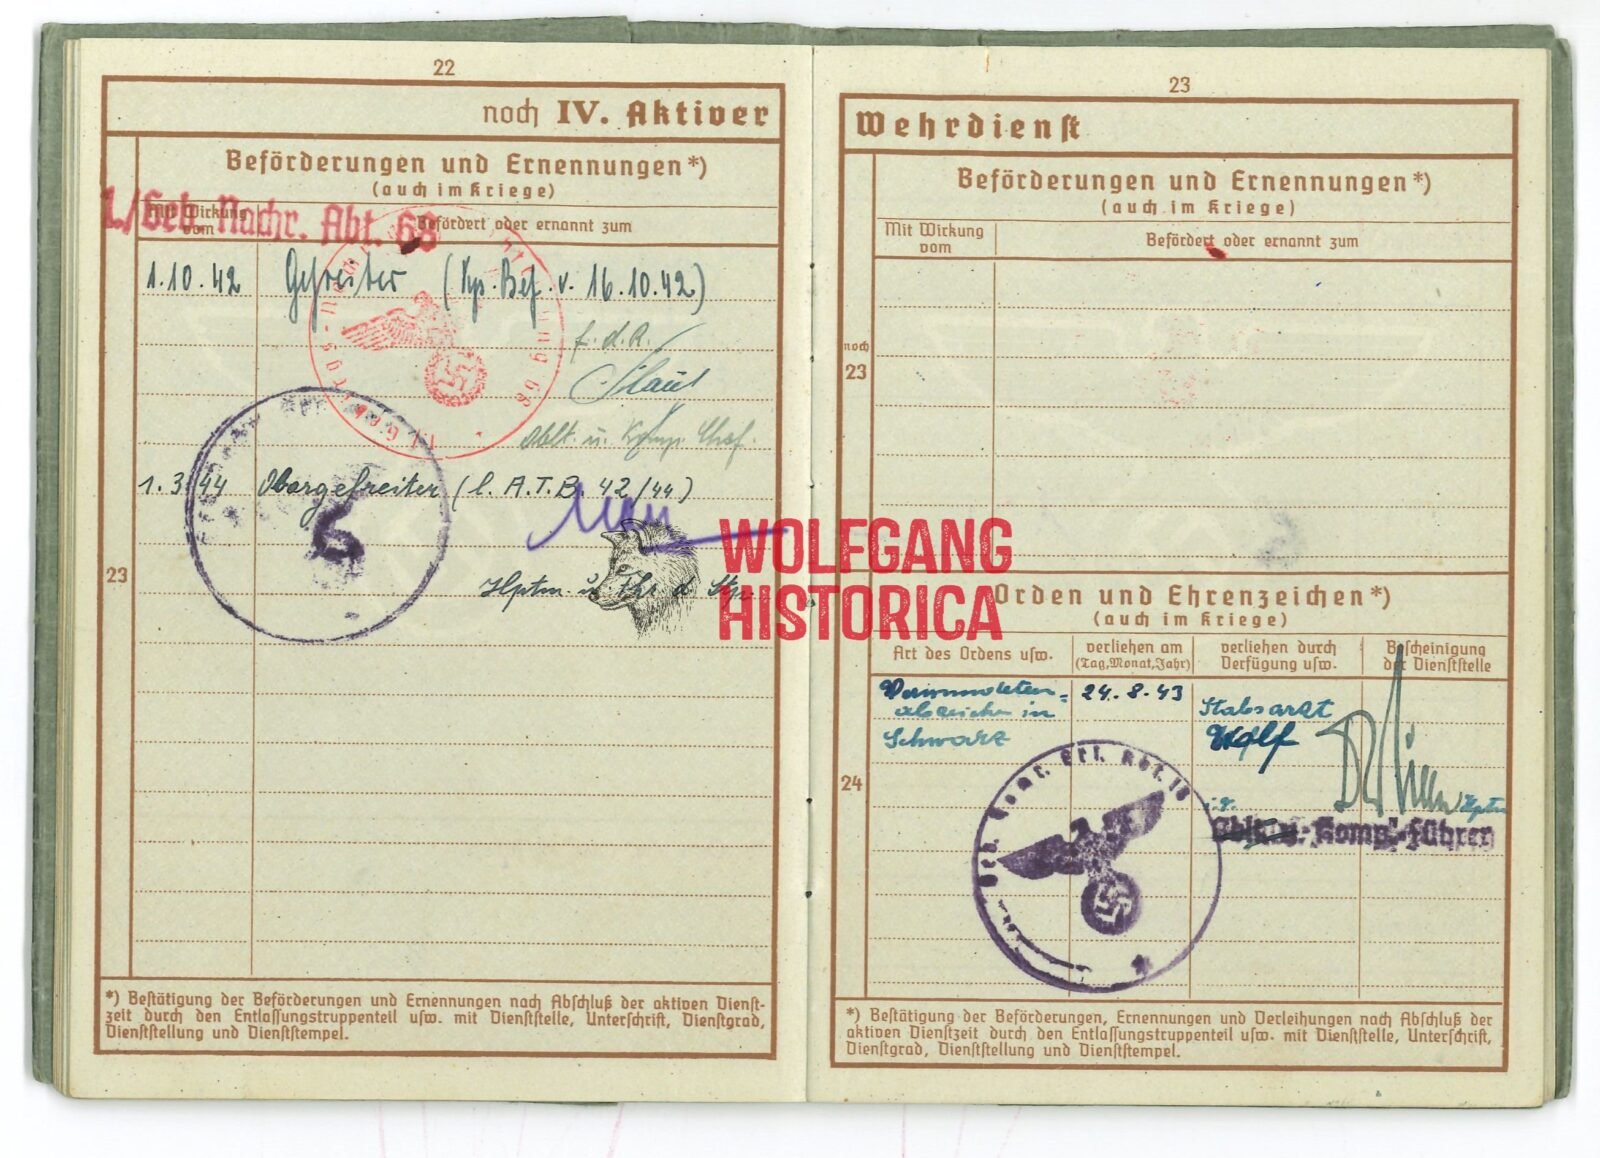 22
noch IV. Aktiver
Beförderungen und Ernennungen*)
(auch im Kriege)
1./Geb. Nachr. Abt. 68
Mit Wirkung
vom
Befördert oder ernannt zum
1.10.42 Gefreiter (Kp. Bef. v. 16.10.42)
f. d. R.
Oblt. u. Komp. Chef.
1.3.44 Obergefreiter (l. A.T.B. 42/44)
Hptm. u. Fhr. d.
23
*) Bestätigung der Beförderungen und Ernennungen nach Abschluß der aktiven Dienst-
zeit durch den Entlassungstruppenteil usw. mit Dienststelle, Unterschrift, Dienstgrad,
Dienststellung und Dienststempel.
WOLFGANG
HISTORICA
23
Wehrdienst
Beförderungen und Ernennungen*)
(auch im Kriege)
Mit Wirkung
vom
Befördert oder ernannt zum
noch
23
Orden und Ehrenzeichen*)
(auch im Kriege)
Art des Ordens usw.
verliehen am
(Tag, Monat, Jahr)
verliehen durch
Verfügung usw.
Bescheinigung
der Dienststelle
Verwundeten=
abzeichen in
Schwarz
24.8.43
Stabsarzt
Wolf
Hptm
Komp.-Führer
Geb. Komp. Ers. Abt. 18
24
*) Bestätigung der Beförderungen, Ernennungen und Verleihungen nach Abschluß der
aktiven Dienstzeit durch den Entlassungstruppenteil usw. mit Dienststelle, Unterschrift,
Dienstgrad, Dienststellung und Dienststempel.